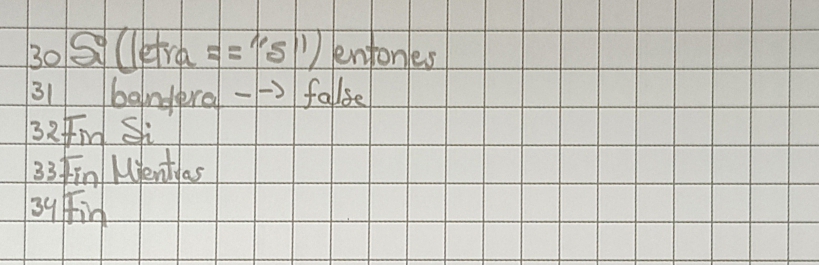 30 Si (letra == "s") entones
31 bandera --> false
32 Fin Si
33 Fin Mientras
34 Fin